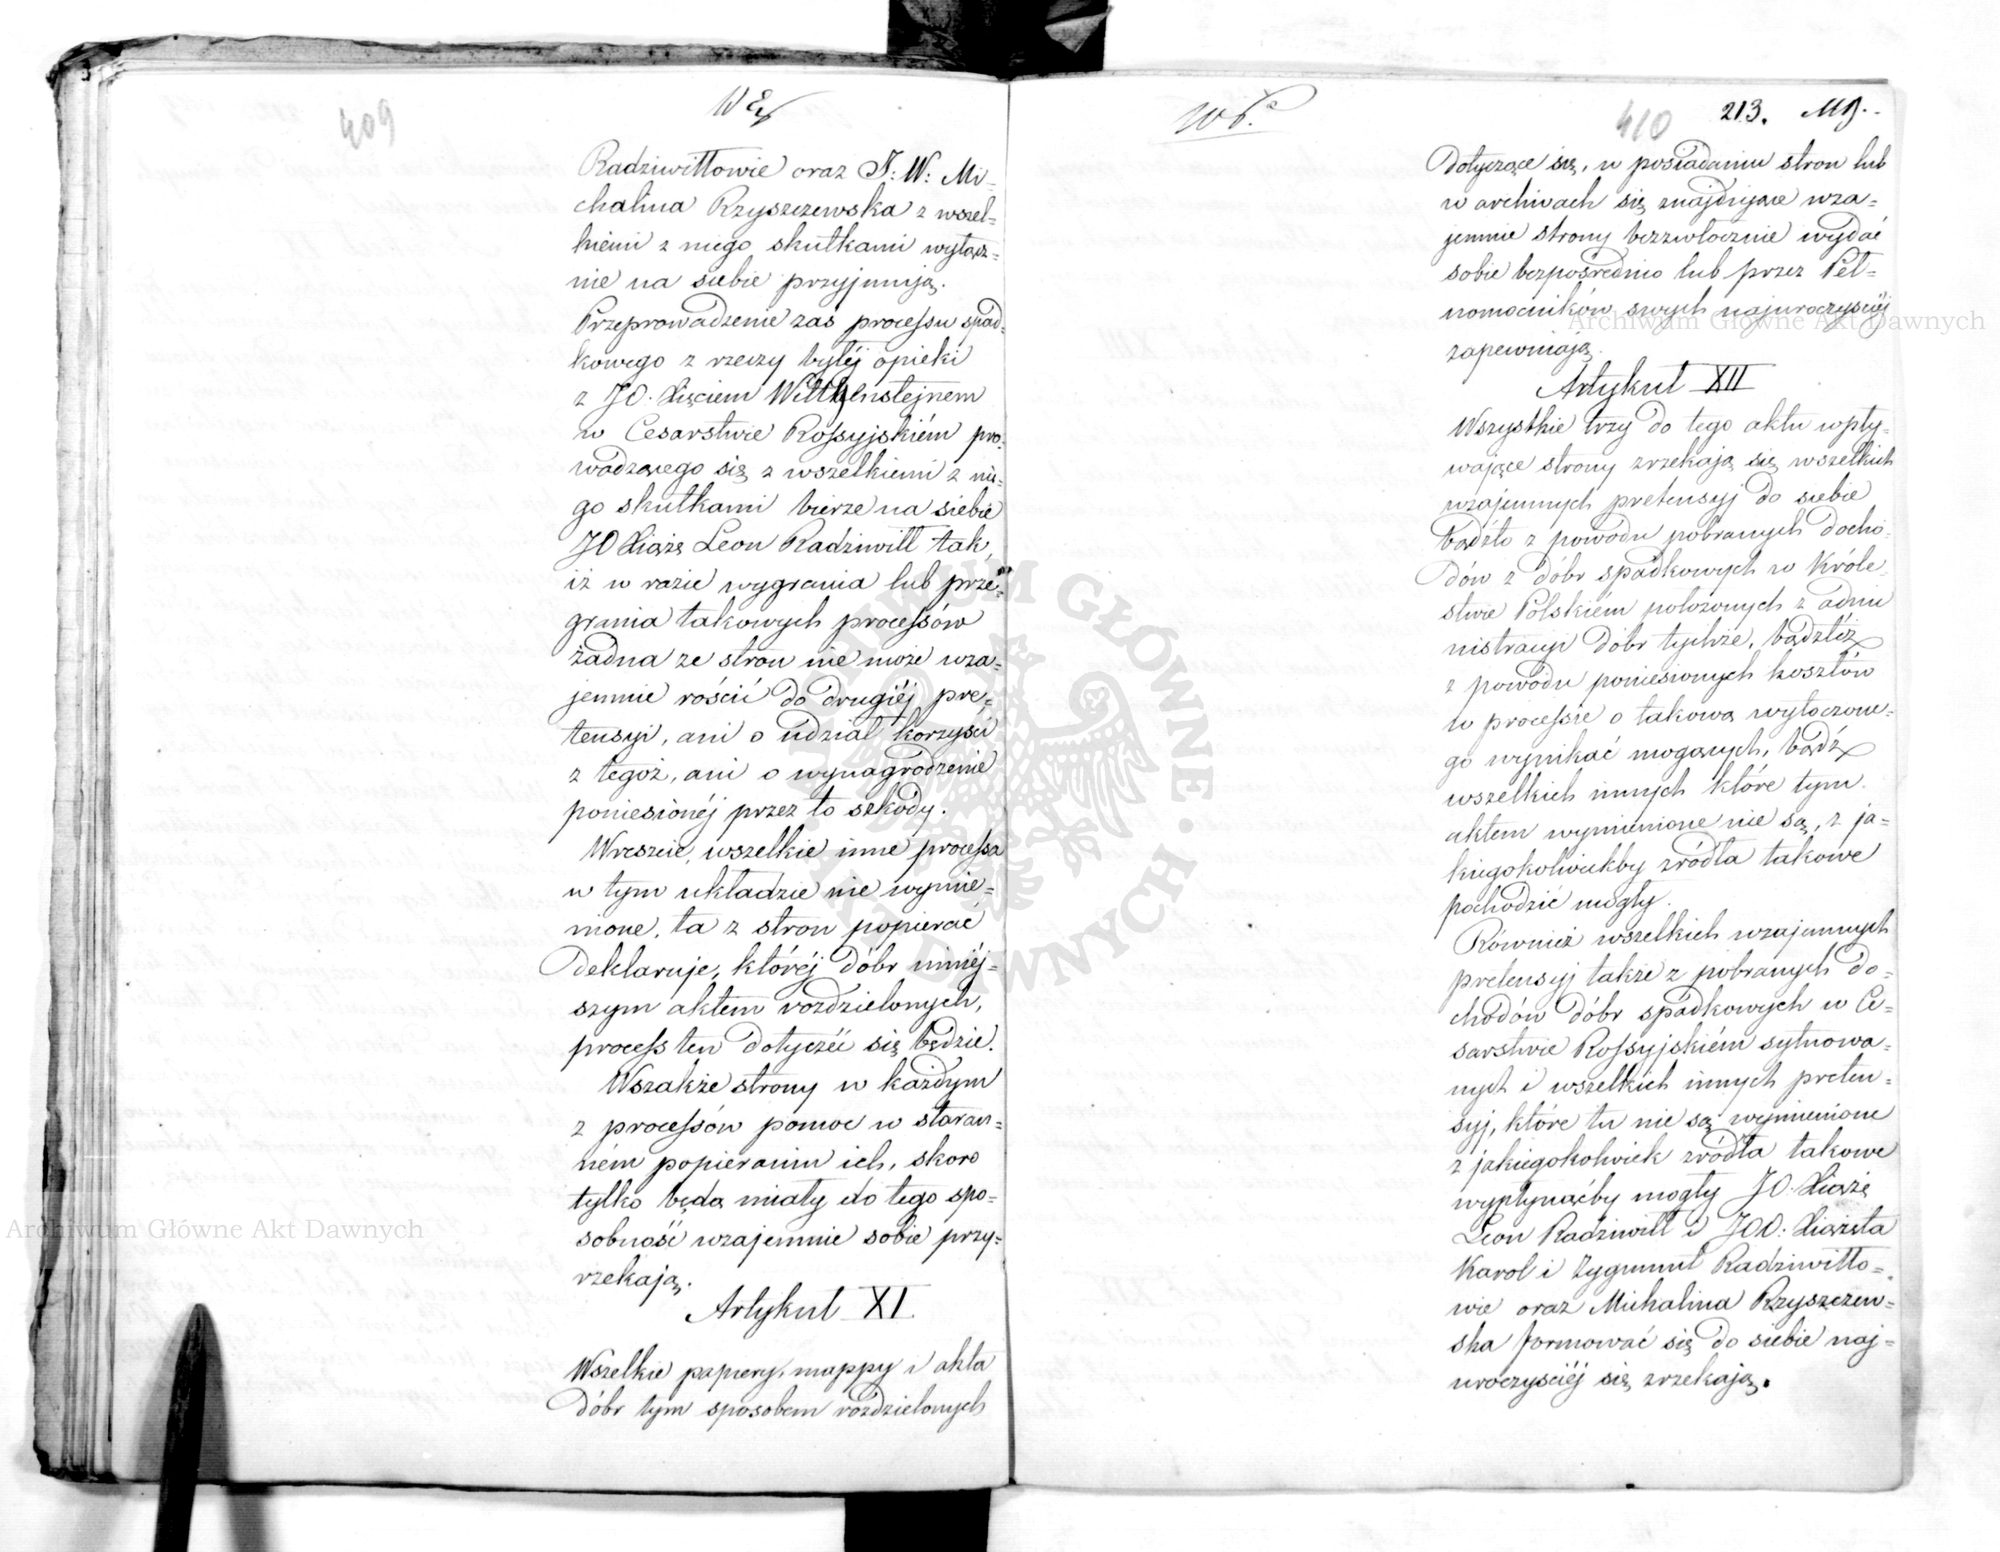 409
Radziwiłłowie oraz J: W: Mi-
chalina Rzyszczewska z wszel-
kiemi z niego skutkami wyłącz-
nie na siebie przyjmują.
Przeprowadzenie zaś processu spad-
kowego z rzeczy byłéj opieki
z JO. Xięciem Witthenstejnem
w Cesarstwie Rossyjskiém pro-
wadzącego się z wszelkiemi z nie-
go skutkami bierze na siebie
JO Xiąże Leon Radziwiłł tak,
iż w razie wygrania lub prze-
grania takowych processów
żadna ze stron nie może wza-
jemnie rościć do drugiéj pre-
tensyi, ani o udział korzyści
z tegoż, ani o wynagrodzenie
poniesionéj przez to szkody.
Wreszcie, wszelkie inne processa
w tym układzie nie wymie-
nione, ta z stron popierać
deklaruje, któréj dóbr niniéj-
szym aktem rozdzielonych,
process ten dotyczéć się będzie.
Wszakże strony w każdym
z processów pomoc w staran-
ném popieraniu ich, skoro
tylko będą miały do tego spo-
sobność wzajemnie sobie przy-
rzekają.
Artykuł XI
Wszelkie papiery, mappy i akta
dóbr tym sposobem rozdzielonych
410
213.
dotyczące się, w posiadaniu stron lub
w archiwach się znajdujące wza-
jemnie strony bezzwłocznie wydać
sobie bezpośrednio lub przez Peł-
nomocników swych najuroczyściéj
zapewniają.
Artykuł XII
Wszystkie trzy do tego aktu wpły-
wające strony zrzekają się wszelkich
wzajemnych pretensyj do siebie
bądźto z powodu pobranych docho-
dów z dóbr spadkowych w Króle-
stwie Polskiém położonych z admi
nistracyi dóbr tychże, bądźtéż
z powodu poniesionych kosztów
w processie o takową wytoczone-
go wynikać mogących, bądź
wszelkich innych które tym
aktem wymienione nie są, z ja-
kiegokolwiekby źródła takowe
pochodzić mogły.
Również wszelkich wzajemnych
pretensyj także z pobranych do-
chodów dóbr spadkowych w Ce-
sarstwie Rossyjskiém sytuowa-
nych i wszelkich innych preten-
syj, które tu nie są wymienione
z jakiegokolwiek źródła takowe
wypłynąćby mogły JO. Xiąże
Leon Radziwiłł i JOO: Xiążęta
Karol i Zygmunt Radziwiłło-
wie oraz Michalina Rzyszczew-
ska formować się do siebie naj-
uroczyściéj się zrzekają.
Archiwum Główne Akt Dawnych
Archiwum Główne Akt Dawnych
ARCHIWUM GŁÓWNE · AKT DAWNYCH ·